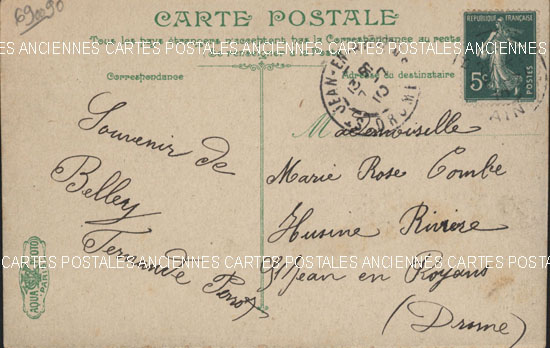 69 00 90
CARTE POSTALE
Tous les pays étrangers n'acceptent pas la Correspondance au recto
CARTES POSTALES ANCIENNES CARTES POSTALES ANCIENNES CARTES POSTALES ANCIENNES
Correspondance
Adresse du destinataire
RÉPUBLIQUE FRANÇAISE
5c
POSTES
ST JEAN-EN-
DROME
AIN
Souvenir de
Belley
Fernande
Mademoiselle
Marie Rose Combe
Husine Rivière
St Jean en Royans
(Drome)
AQUA PHOTO
PARIS
CARTES POSTALES ANCIENNES CARTES POSTALES ANCIENNES CARTES POSTALES ANCIENNES